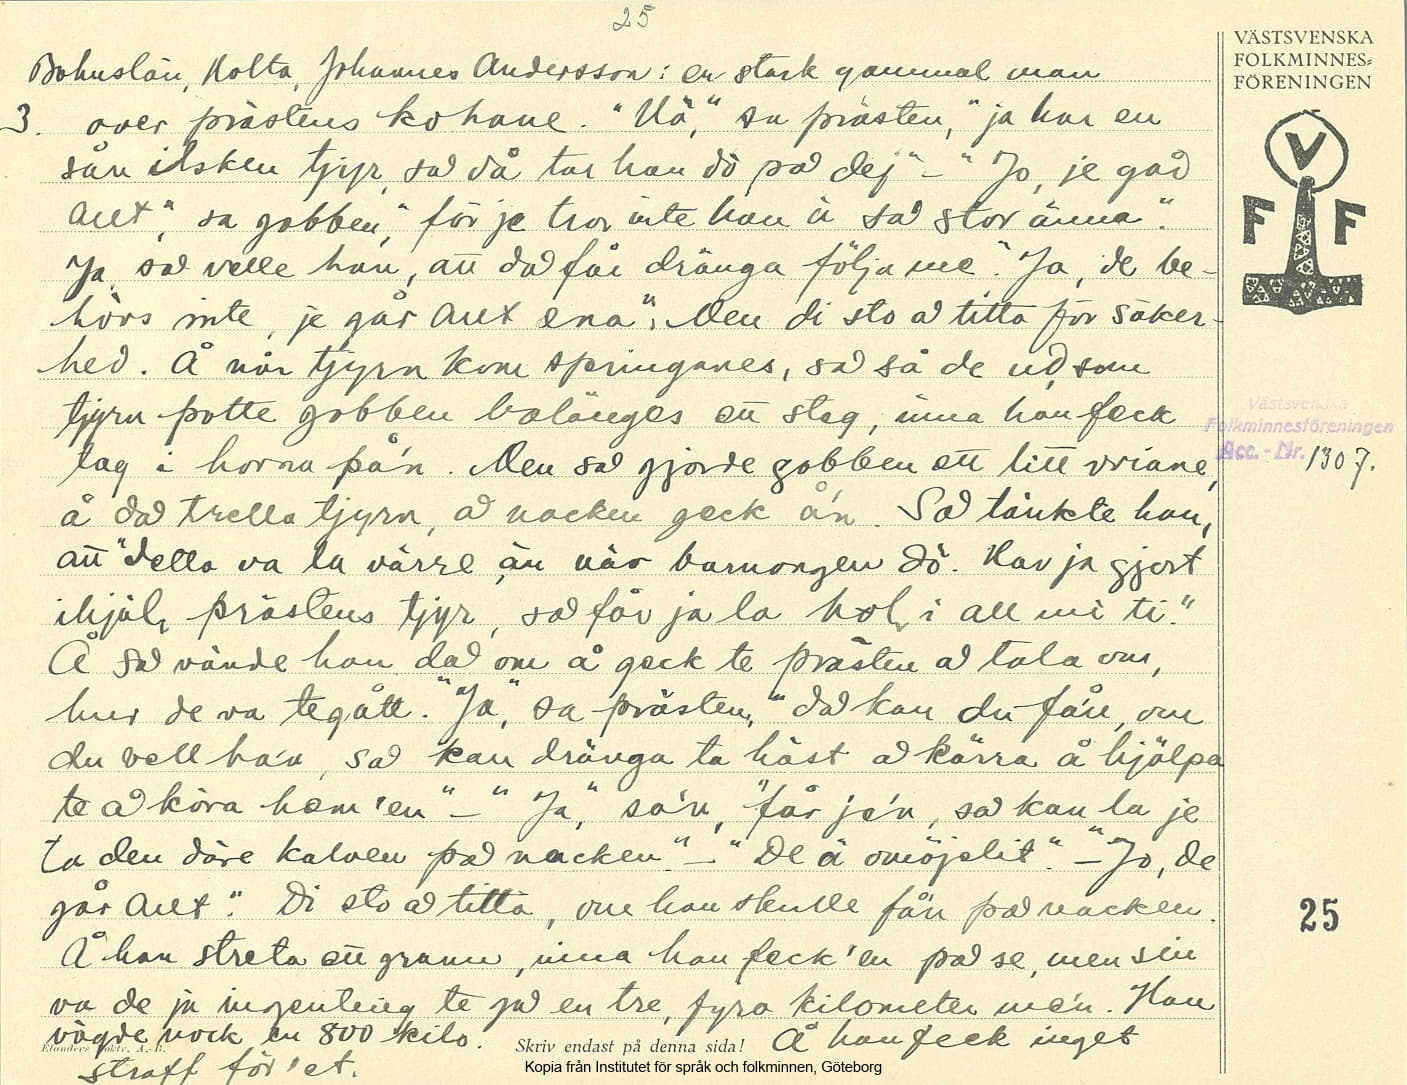 25
VÄSTSVENSKA
FOLKMINNES=
FÖRENINGEN
V
F F
Bohuslän, Holta, Johannes Andersson: en stark gammal man
3. over prästens kohane. "Nä," sa prästen, "ja har en
sån ilsken tjyr, sa då tar han dö pad dej" – "Jo, je gåd
aux", sa gobben, "för je tror inte han ä sad stor änna".
Ja, sad velle han, att dad får dränga följa me." Ja, de be-
hövs inte, je går aux ena". Men di sto ad titta för säker-
hed. Å når tjyrn kom springanes, sad så de ud, som
tjyrn potte gobben balänges ett steg, inna han feck
tag i horna på'n. Men sad gjorde gobben ett litt vriane,
å dad trella tjyrn, ad nacken geck å'n. Sad tänkte han,
att "detta va la värre än när barnongen dö. Har ja gjort
ihjäl prästens tjyr, sad får ja la hol i all mi ti."
Å sad vände han dad om å geck te prästen ad tala om,
hur de va tegått. "Ja," sa prästen, "dad kan du få'n, om
du vell ha'n, sad kan dränga ta häst ad kärra å hjälpa
te ad köra hem 'en" – "Ja," sa'n, "får je'n, sad kan la je
ta den däre kalven pad nacken" – "De ä omöjelit". – "Jo, de
går aux". Di sto ad titta, om han skulle få'n pad nacken.
Å han streta ett gramm, inna han feck 'en pad se, men sin
va de ja ingenting te gad en tre, fyra kilometer me'n. Han
vägde nock en 800 kilo. Å han feck inget
straff för 'et.
Västsvenska
Folkminnesföreningen
Acc. - Nr. 1307.
25
Elanders Boktr. A.-B.
Skriv endast på denna sida!
Kopia från Institutet för språk och folkminnen, Göteborg